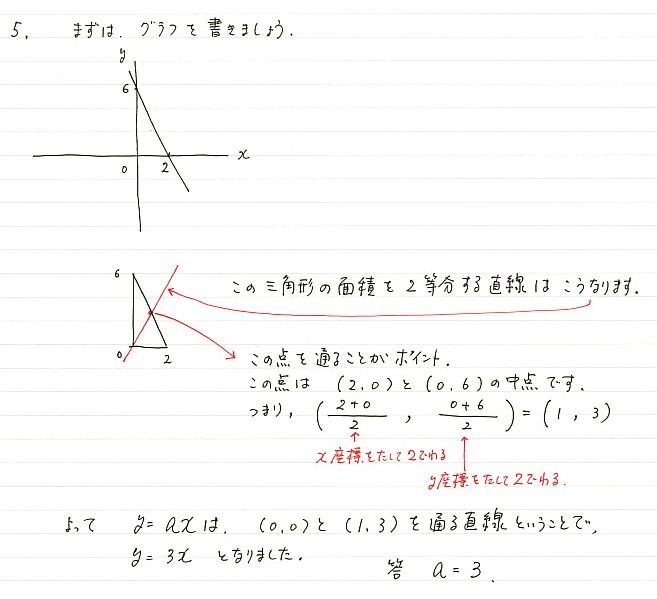 5. まずは、グラフを書きましょう.
y
6
x
0 2
6
この三角形の面積を2等分する直線は こうなります.
0 2
この点を通ることがポイント.
この点は (2,0)と(0,6)の中点です.
つまり, (2+0/2 , 0+6/2) = (1, 3)
x座標をたして2でわる
y座標をたして2でわる.
よって y=axは、(0,0)と(1,3)を通る直線ということで,
y=3x となりました.
答 a=3.